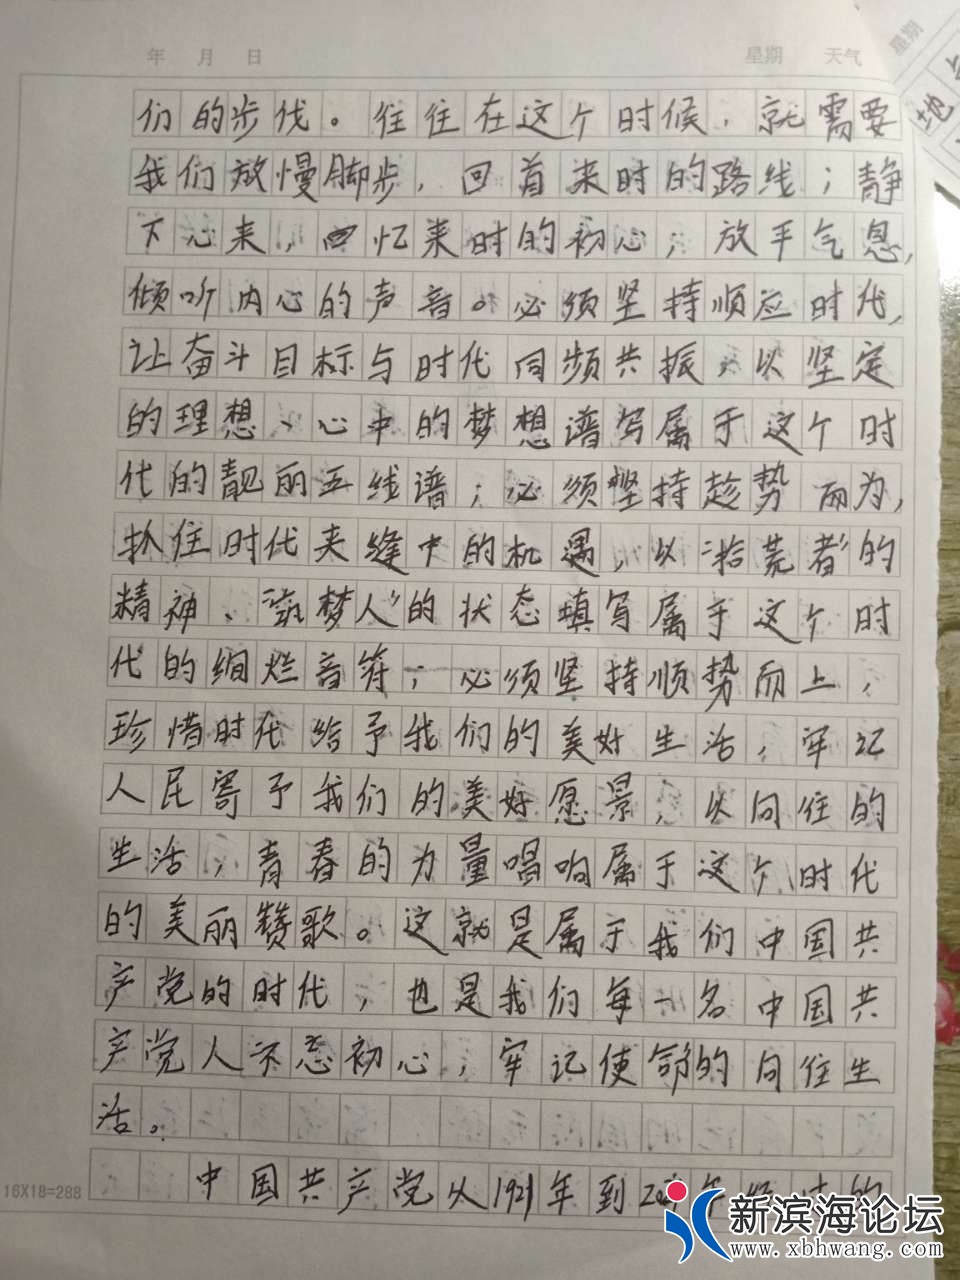 年 月 日 星期 天气
星期
地
们的步伐。往往在这个时候，就需要
我们放慢脚步，回首来时的路线；静
下心来，回忆来时的初心；放手气息，
倾听内心的声音。必须坚持顺应时代，
让奋斗目标与时代同频共振，以坚定
的理想、心中的梦想谱写属于这个时
代的靓丽五线谱；必须坚持趁势而为，
抓住时代夹缝中的机遇，以“拾荒者”的
精神、“筑梦人”的状态填写属于这个时
代的绚烂音符；必须坚持顺势而上，
珍惜时代给予我们的美好生活，牢记
人民寄予我们的美好愿景，以向往的
生活，青春的力量唱响属于这个时代
的美丽赞歌。这就是属于我们中国共
产党的时代，也是我们每一名中国共
产党人不忘初心，牢记使命的向往生
活。
中国共产党从1921年到2021年
16X18=288
新滨海论坛
www.xbhwang.com